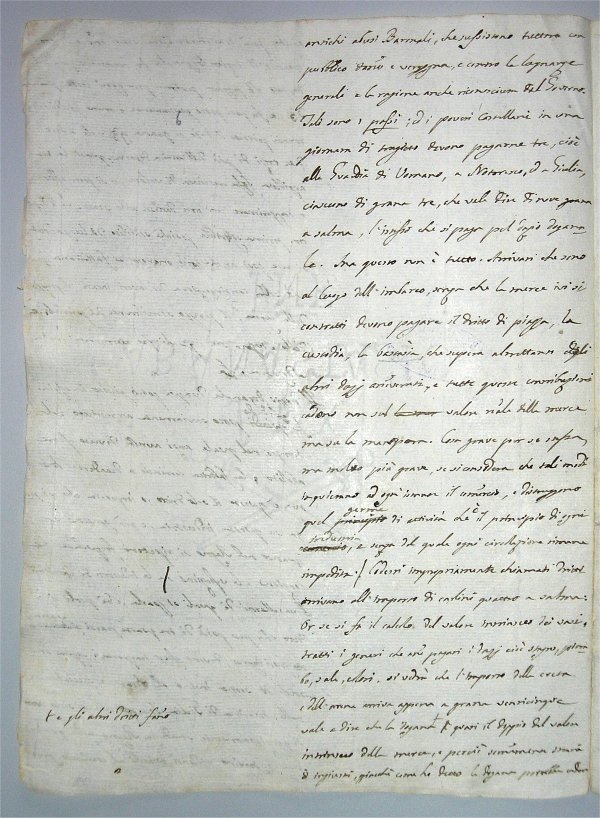 antichi abusi Baronali, che sussistono tuttora con
pubblico danno e vergogna, e contro le lagnanze
generali e la ragione anche riconosciuta dal Governo.
Tali sono i passi; ed i poveri Castellani in una
giornata di tragitto devono pagarne tre, cioè
alla Guardia di Vomano, a Notaresco, ed a Giulia,
ciascuno di grana tre, che vale dire di nove grana
a salma, l'istesso che si paga pel dazio dogana-
le. Ma questo non è tutto. Arrivati che sono
al luogo dell'imbarco, senza che la merce ivi si
contratti devono pagare il dritto di piazza, la
custodia, la che supera altrettanto degli
altri dazj accennati, e tutte queste contribuzioni
cadono non sul valore reale della merce
ma su la manopera. Cosa grave per se stessa,
ma molto più grave, se si considera che tali modi
impediscono ad ogni istante il comercio, e distruggono
germe
quel principio di attività ch'è il principio di ogni
industria
comercio, e senza del quale ogni circolazione rimane
impedita. Codesti impropriamente chiamati dritti
arrivano all'importo di carlini quattro a salma.
Or se si fa il calcolo del valore intrinseco dei vasi,
tratti i generi che anno pagati i dazj cioè stagno, piom-
bo, sale, colori, si vedrà che l'importo della creta
e dell'arena arriva appena a grana venticinque
vale a dire che la dogana † quasi il doppio del valore
intrinseco della merce, e perciò
di impianti, giacchè come ho detto la dogana
† e gli altri dritti fanno